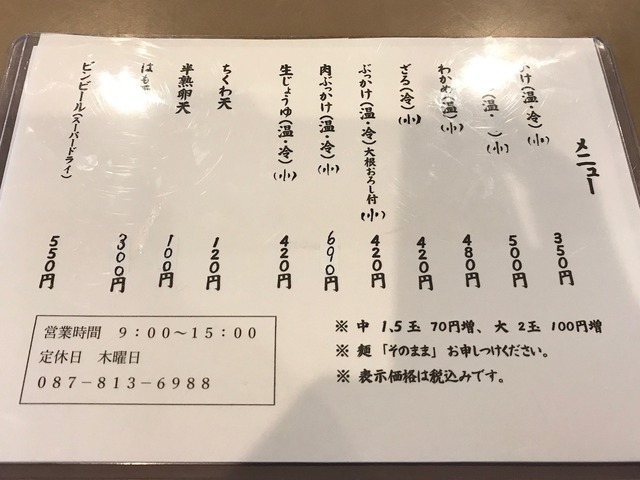 メニュー
かけ(温・冷)(小) 350円
(温・ )(小) 500円
わかめ(温・ )(小) 480円
ざる(冷)(小) 420円
ぶっかけ(温・冷)大根おろし付(小) 420円
肉ぶっかけ(温・冷)(小) 690円
生じょうゆ(温・冷)(小) 420円
ちくわ天 120円
半熟卵天 100円
はも 300円
ビンビール(スーパードライ) 550円
※ 中 1.5玉 70円増、大 2玉 100円増
※ 麺「そのまま」お申しつけください。
※ 表示価格は税込みです。
営業時間 9:00〜15:00
定休日 木曜日
087−813−6988